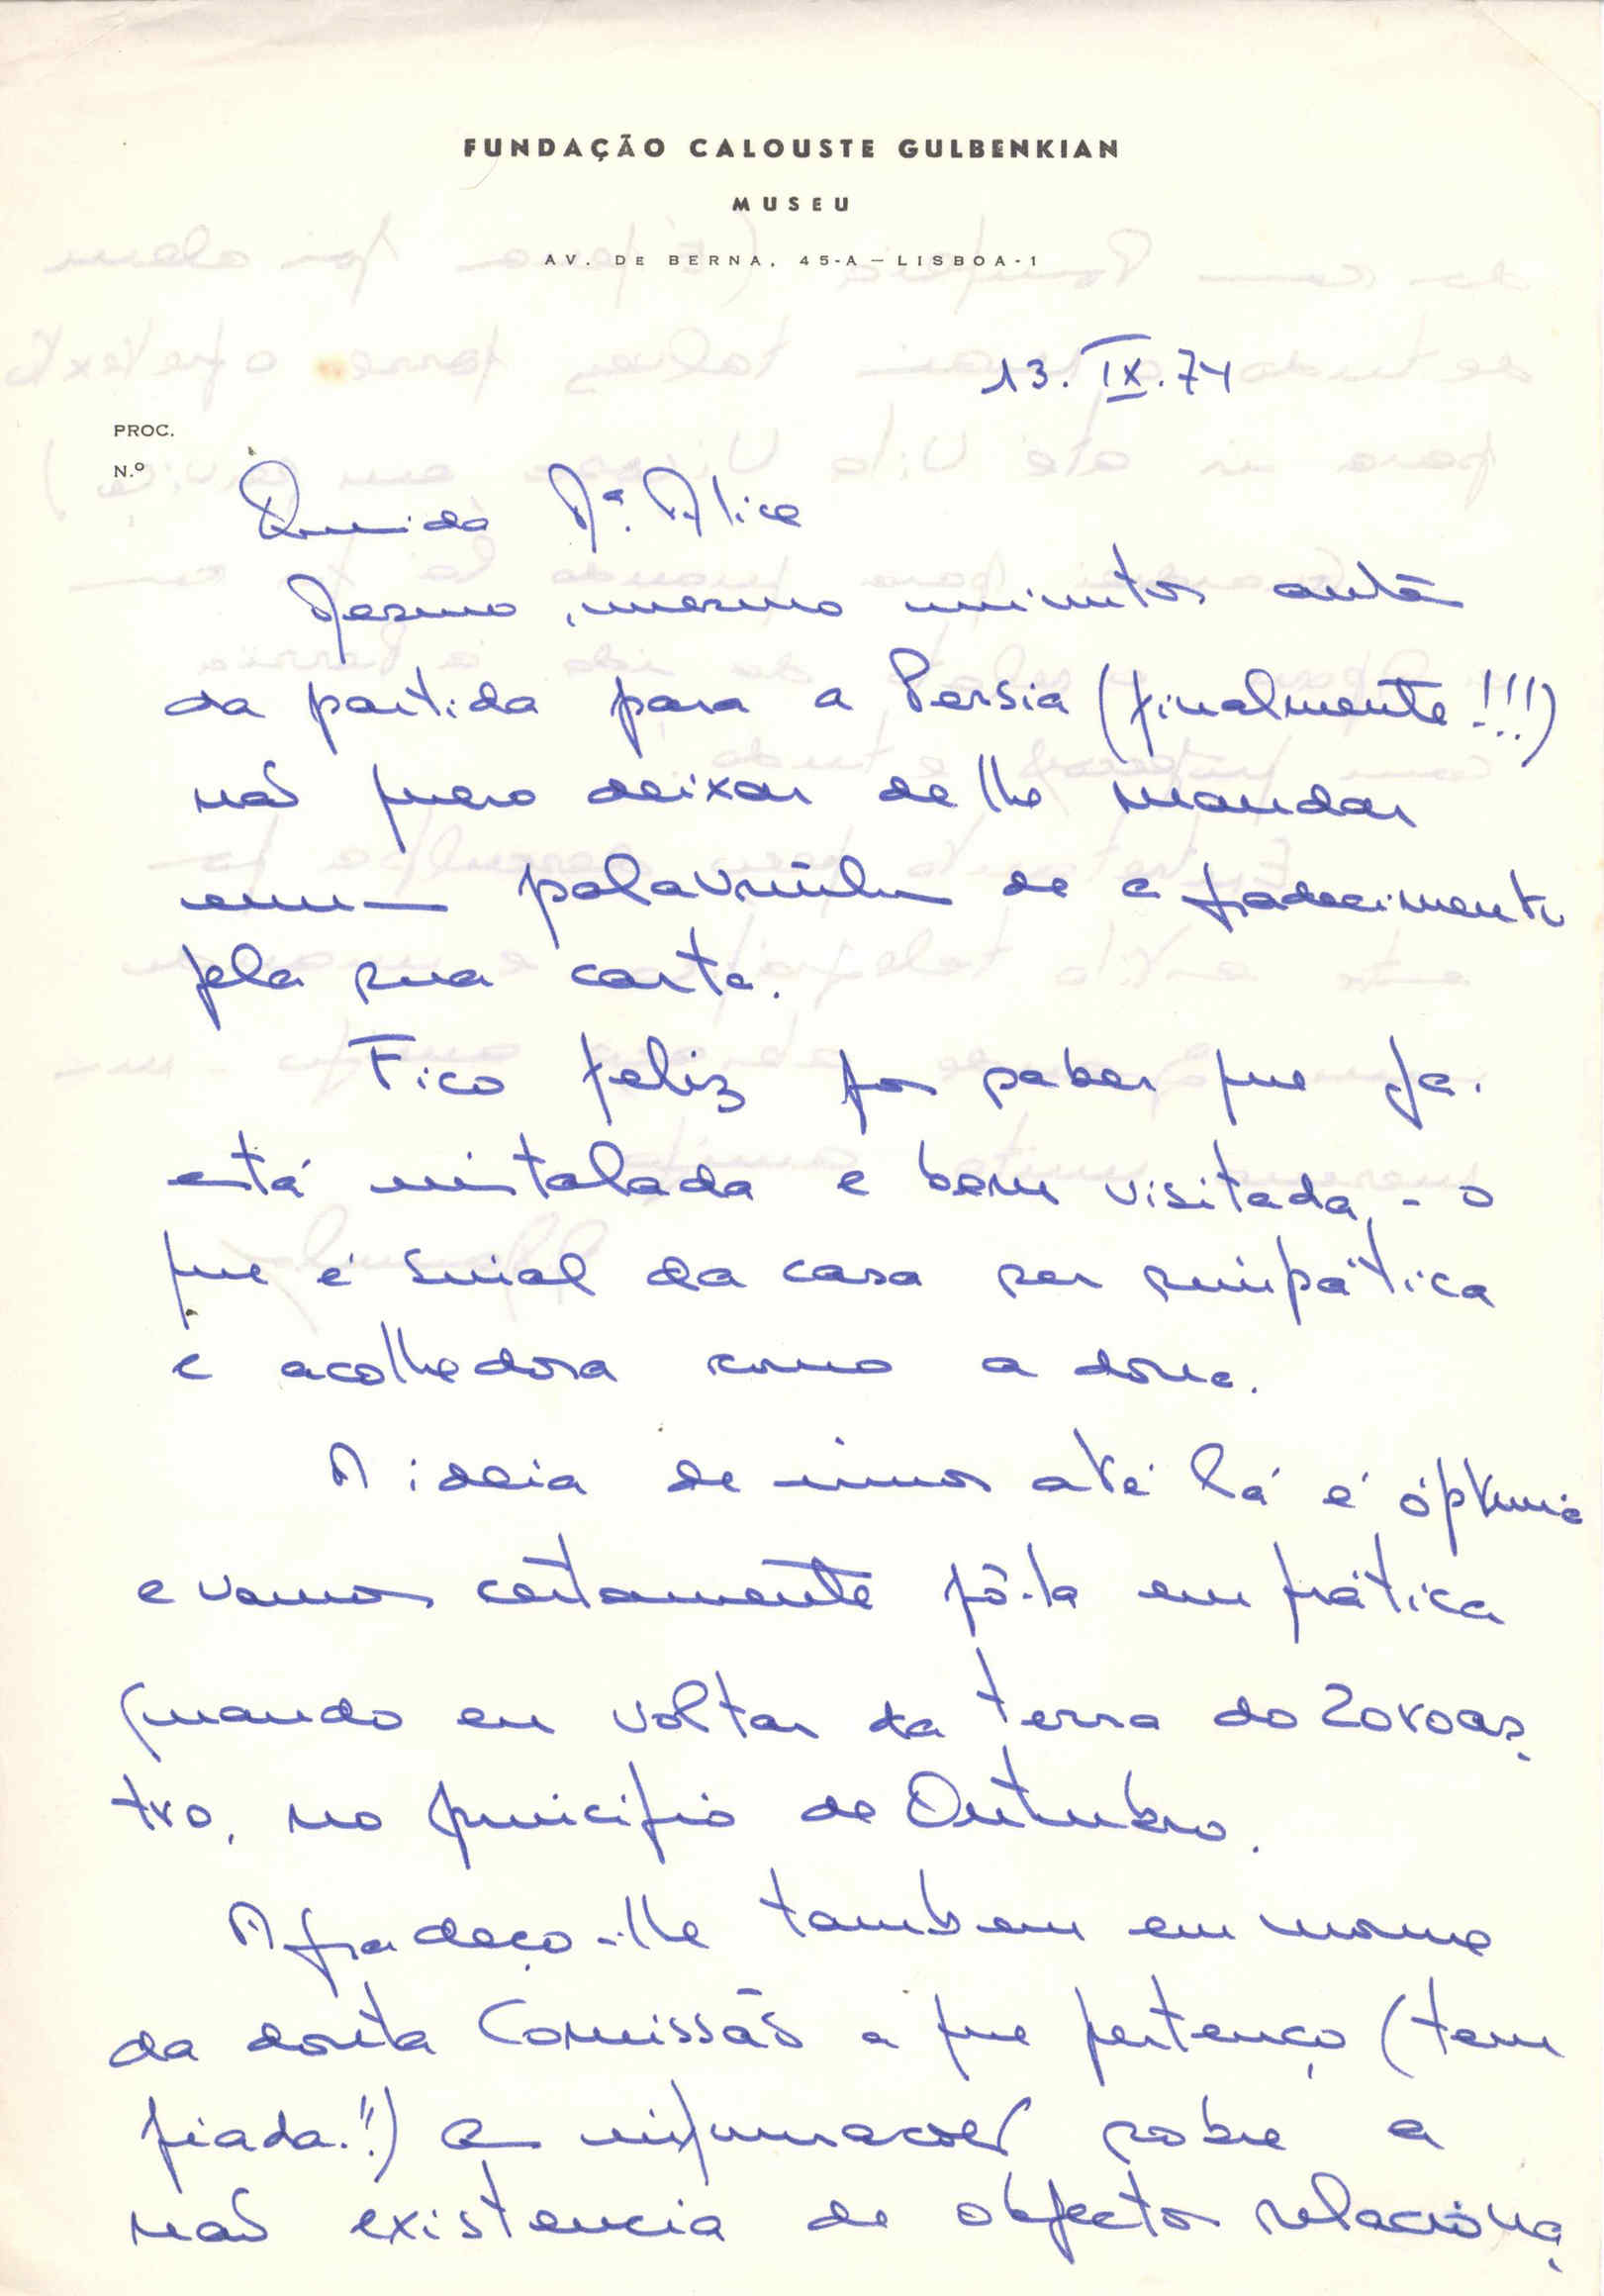 FUNDAÇÃO CALOUSTE GULBENKIAN
MUSEU
AV. DE BERNA, 45-A — LISBOA-1
13. IX. 74
PROC.
N.º
Querida Dª. Alice
Mesmo, mesmo minutos antes
da partida para a Persia (finalmente!!!)
não quero deixar de lhe mandar
uma palavrinha de agradecimento
pela sua carta.
Fico feliz por saber que já
está instalada e bem visitada, - o
que é sinal da casa ser simpática
e acolhedora como a dona.
A ideia de irmos até lá é óptima
e vamos certamente pô-la em prática
quando eu voltar da terra do Zoroas-
tro, no principio de Outubro.
Agradeço-lhe tambem em nome
da douta Comissão a que pertenço (tem
piada!!) as informações sobre a
não existencia de objectos relaciona-